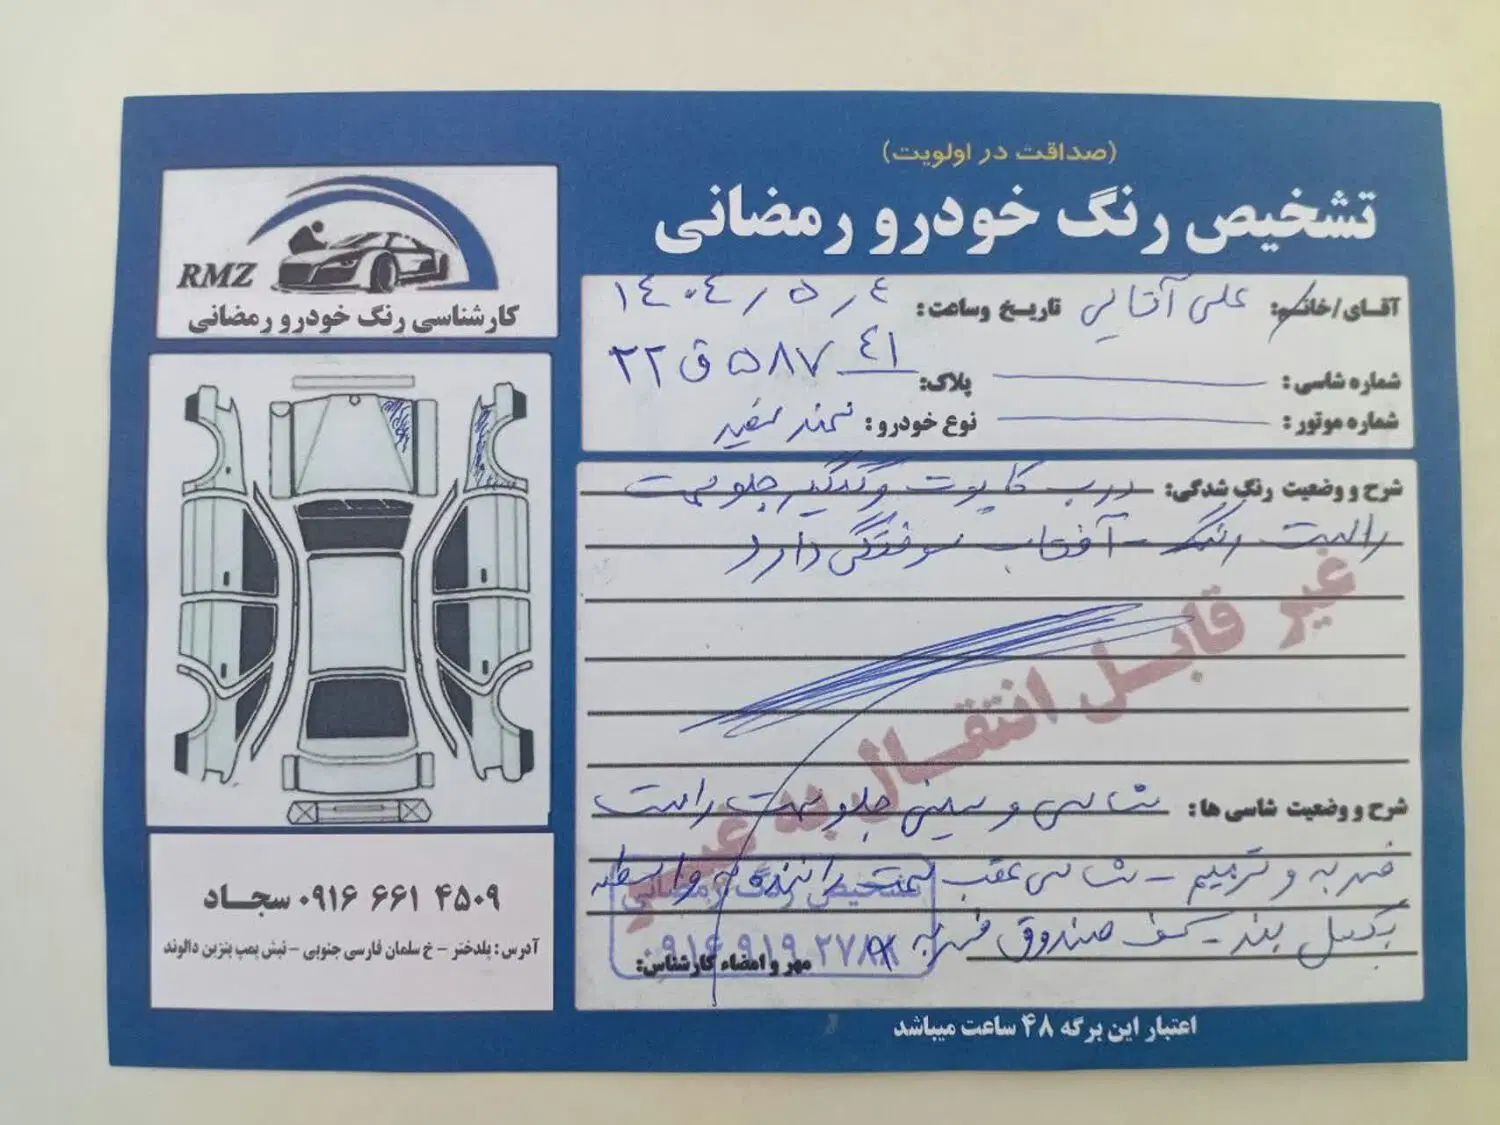 (صداقت در اولویت)
تشخیص رنگ خودرو رمضانی
RMZ
کارشناسی رنگ خودرو رمضانی
آقای/خانم: علی آقائی تاریخ وساعت: ۱۴۰۴/۵/۴
شماره شاسی: پلاک: ۲۲ ق ۵۸۷ ۴۱
شماره موتور: نوع خودرو: سمند سفید
شرح و وضعیت رنگ شدگی: درب کاپوت و گلگیر جلو سمت
راست رنگ - آفتاب سوختگی دارد
غیر قابل انتقال به غیر
شرح و وضعیت شاسی ها: شاسی و سینی جلو سمت راست
ضربه و ترمیم - شاسی عقب سمت راننده به واسطه
بکسل بند - کف صندوق ضربه
تشخیص رنگ رمضانی
۰۹۱۶ ۹۱۹ ۲۷۸۸
مهر و امضاء کارشناس:
۰۹۱۶ ۶۶۱ ۴۵۰۹ سجـاد
آدرس: پلدختر - خ سلمان فارسی جنوبی - نبش پمپ بنزین دالوند
اعتبار این برگه ۴۸ ساعت میباشد